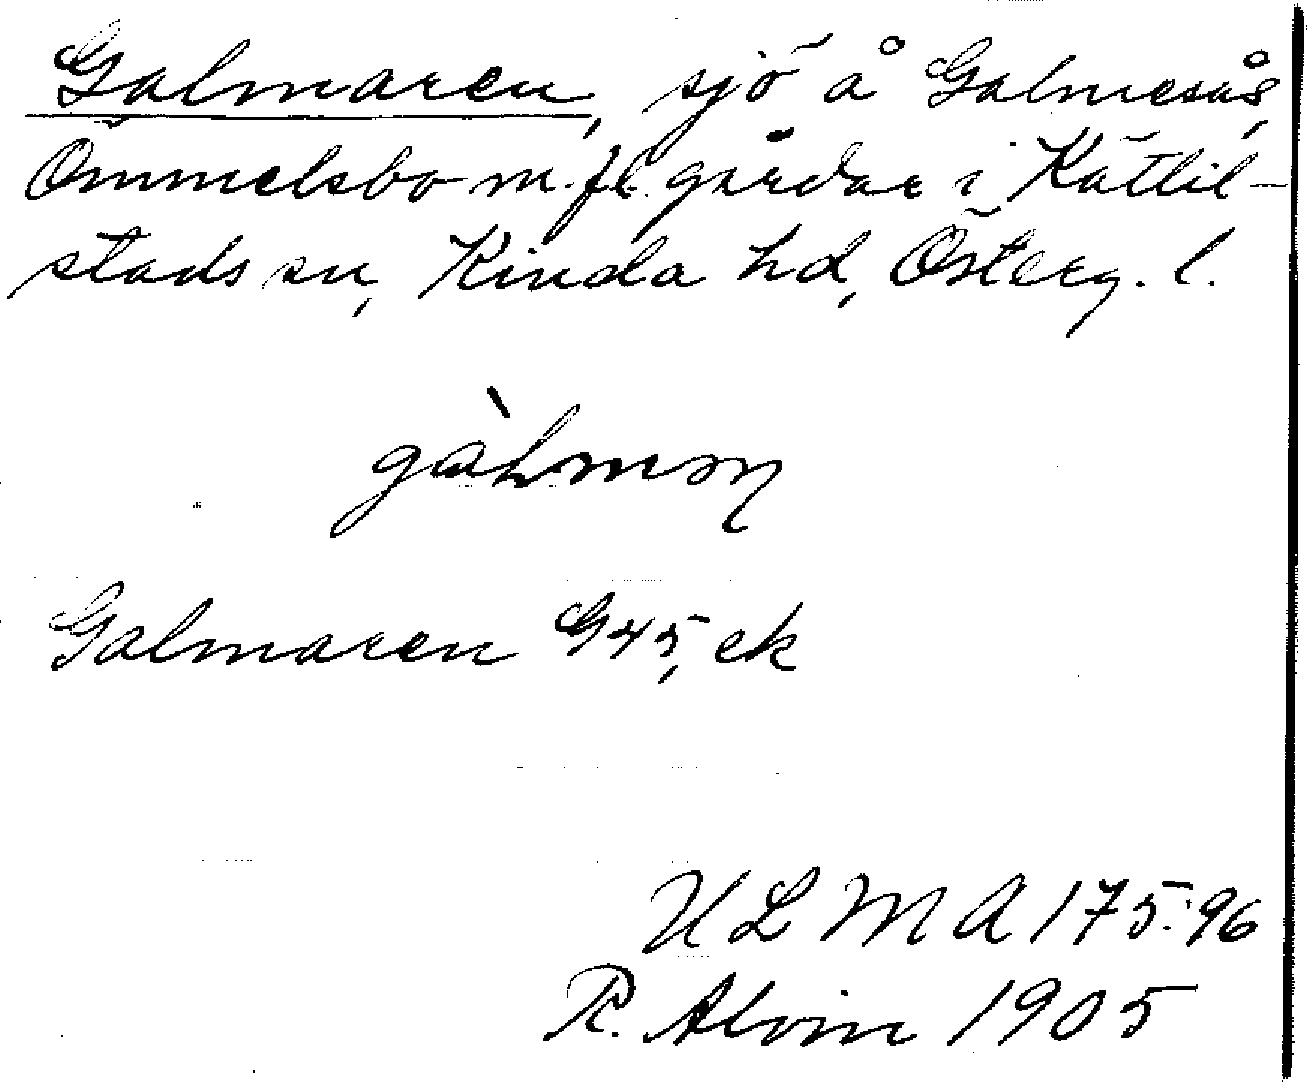 Galmaren, sjö å Galmesås,
Ömmelsbo m.fl. gårdar i Kättil-
stads sn, Kinda hd, Österg. l.
Galmaren G45, ek
ULMA 175:96
R. Alvin 1905